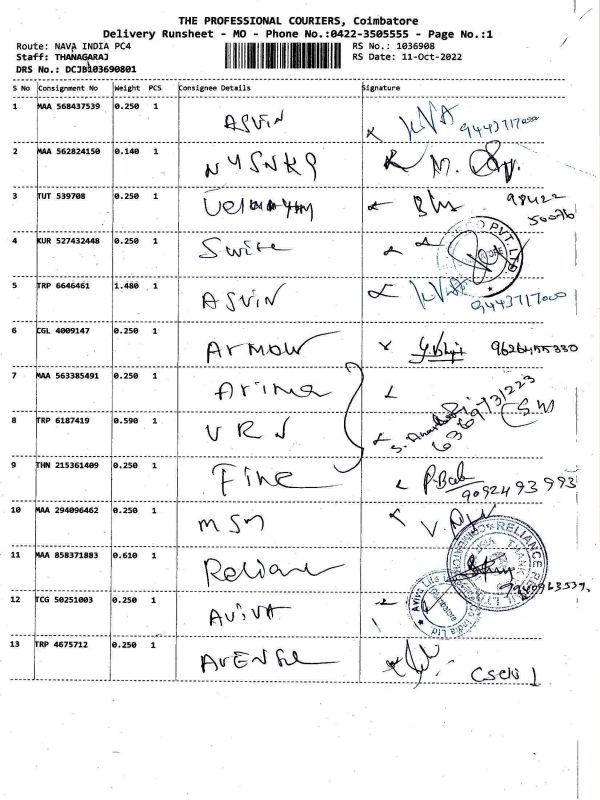 THE PROFESSIONAL COURIERS, Coimbatore
Delivery Runsheet - MO - Phone No.:0422-3505555 - Page No.:1
Route: NAVA INDIA PC4 RS No.: 1036908
Staff: THANAGARAJ RS Date: 11-Oct-2022
DRS No.: DCJB103690801
S No Consignment No Weight PCS Consignee Details Signature
1 MAA 568437539 0.250 1 ASVIN 9443717000
2 MAA 562824150 0.140 1 M.
3 TUT 539708 0.250 1 98422
50076
4 KUR 527432448 0.250 1 Swire PVT. LTD.
5 TRP 6646461 1.480 1 ASVIN 9443717000
6 CGL 4009147 0.250 1 Armow 9626455330
7 MAA 563385491 0.250 1 Arima
8 TRP 6187419 0.590 1 VRN 6369731223
9 THN 215361409 0.250 1 Fine 9092493993
10 MAA 294096462 0.250 1 MSM V.
11 MAA 858371883 0.610 1 Reliance RELIANCE
12 TCG 50251003 0.250 1 AVIVA Aviva Life India Ltd
13 TRP 4675712 0.250 1